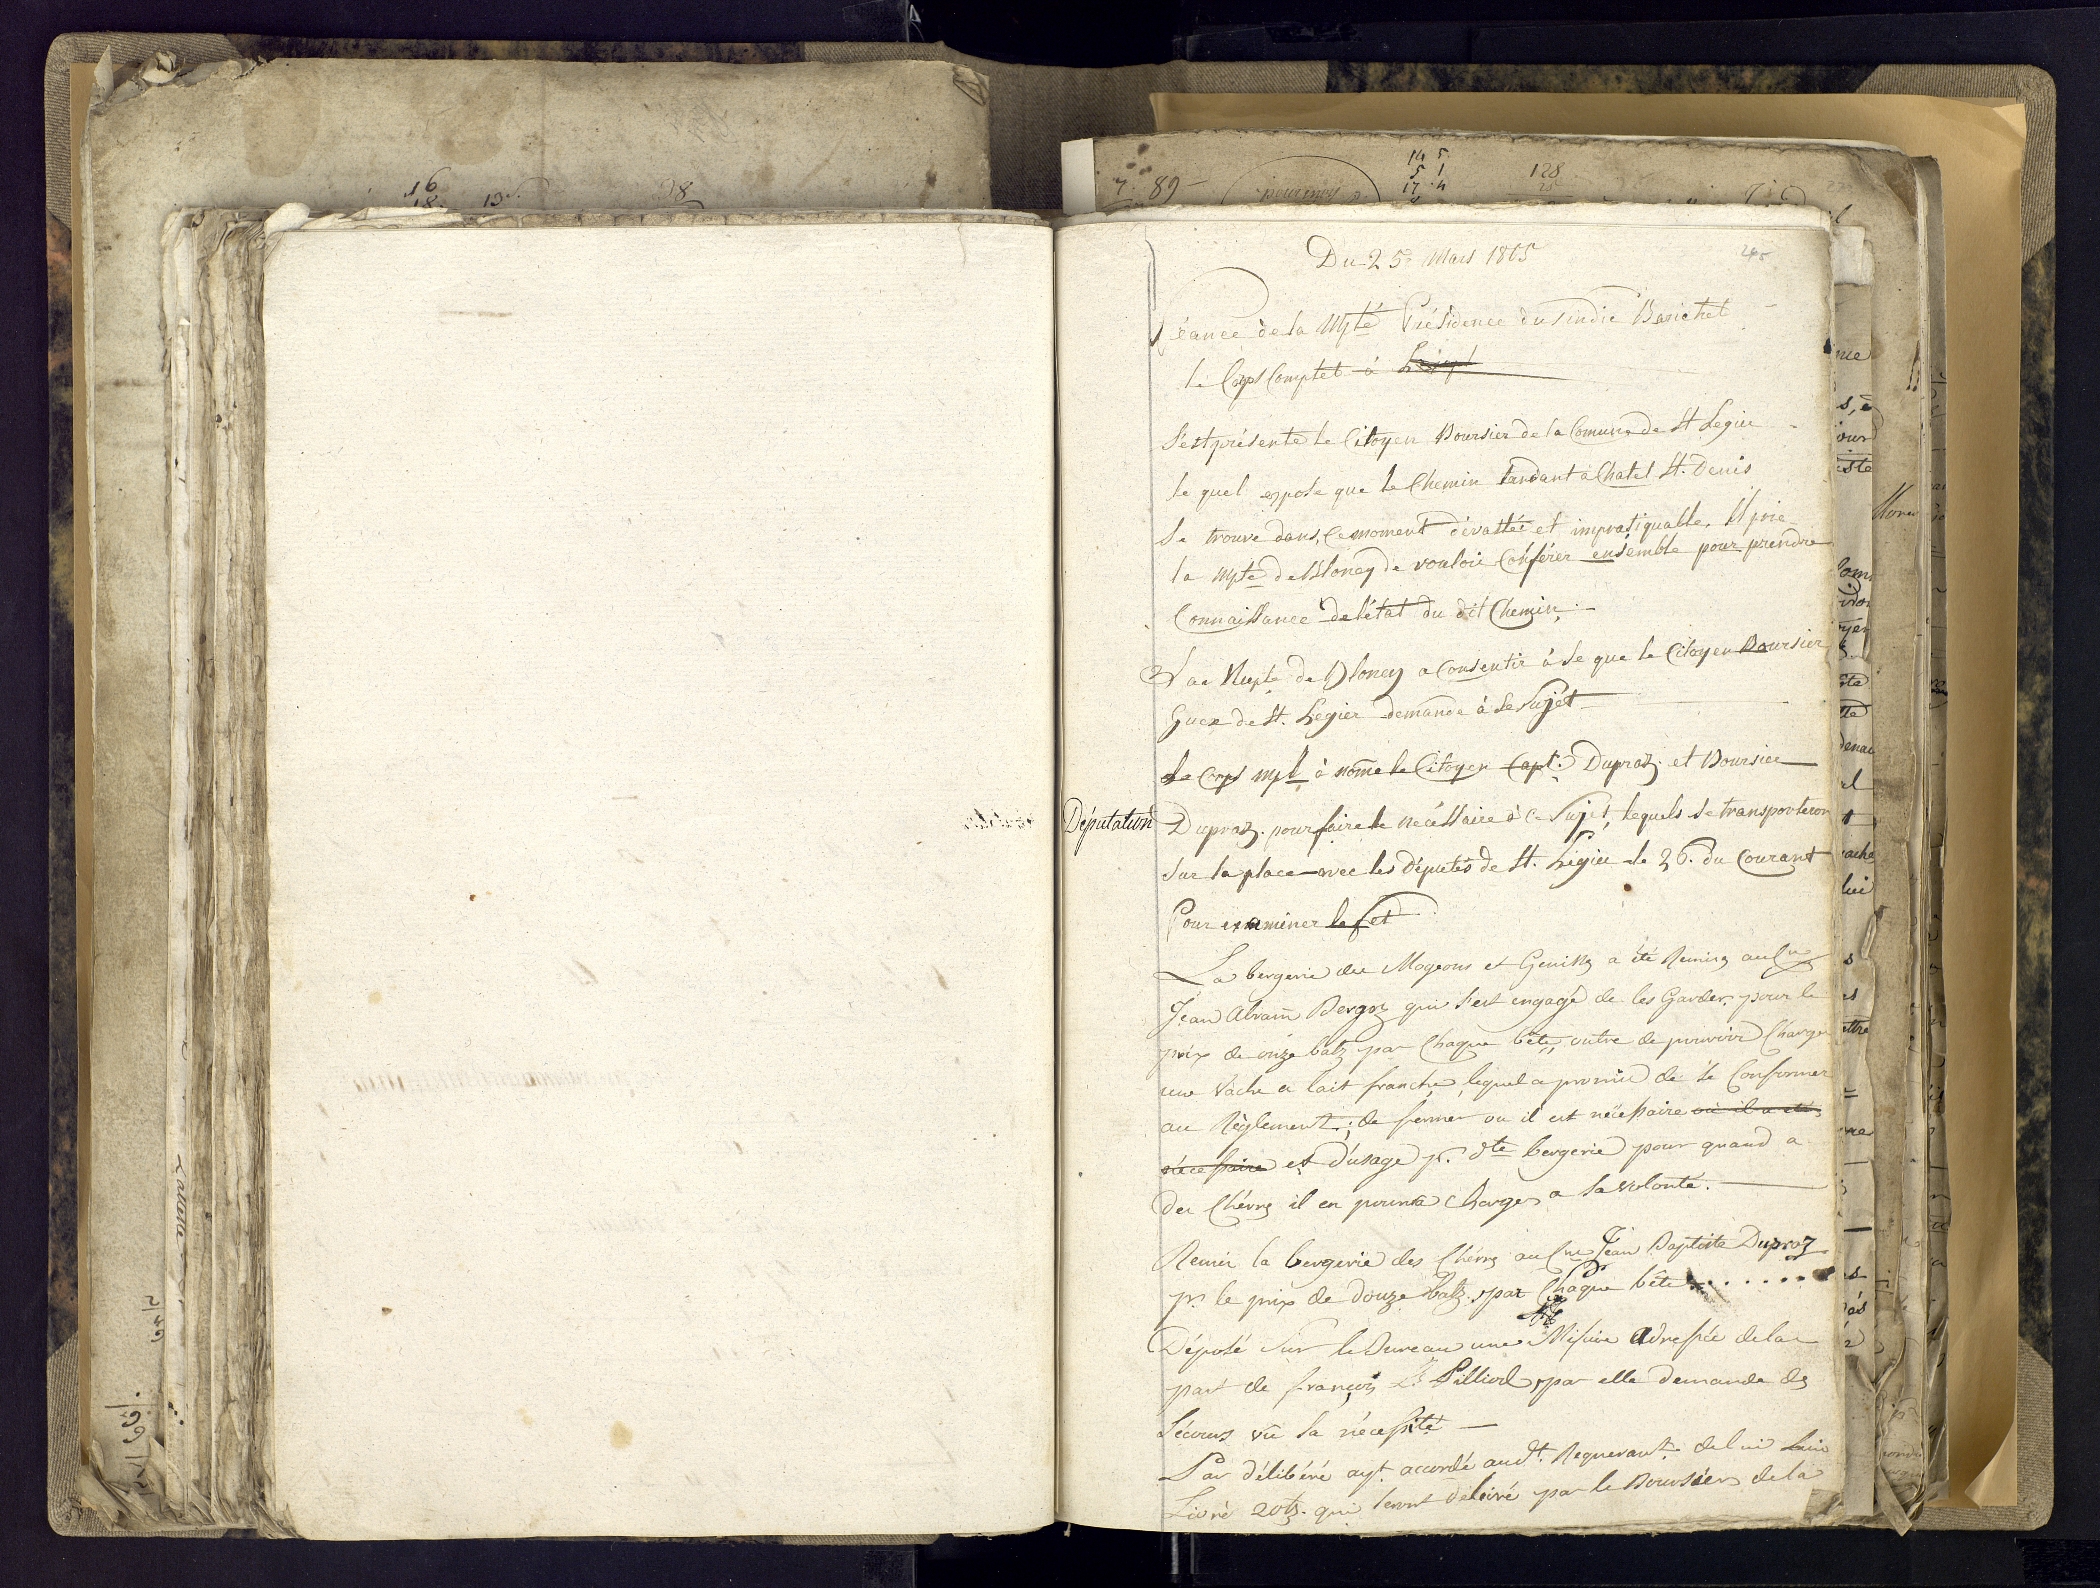 Du 25e Mars 1805
245
Séance de la Mpté Présidence du Sindic Barichet
le Corps Complet à
S'est présenté le Citoyen Boursier de la Comune de St Legier
le quel expose que le Chemin tandant à Chatel St. Denis
se trouve dans ce moment dévatté et impratiquable. Il prie
la Mpté de Bloney de vouloir Conférer ensemble pour prendre
Connaissance de l'état du dit Chemin.
La Mupté de Bloney a Consentir à se que le Citoyen Boursier
Guex de St. Legier demande à se Sujet
Le Corps Mpl à nomé le Citoyen Capt. Dupraz et Boursier
Députation
Dupraz. pour faire le nécéssaire à ce Sujet, lequels se transporteron
Sur la place avec les députés de St. Légier le 26. du Courant
Pour examiner le fet
La bergerie des Mogeons et Genisses a été Remise au Cne
Jean Abram Bergoz qui s'est engagé de les Garder pour le
prix de onze batz par Chaque bête, outre de pouvoir Charger
une Vache a lait franche, lequel a promis de se Conformer
au Règlement; de fermer ou il est nécessaire ou il a été
nécessaire et d'usage pr. dte bergerie pour quand a
des Chévres il en pourra Charger a sa volonté.
Remis la bergerie des Chévres au Cne Jean Baptiste Dupraz
pr le prix de douze batz. par Chaque bête
Déposé Sur le Bureau une Misive adressée de la
part de françois Ls Pilliod, par elle demande des
Sécours vu sa nécessité
Par délibéré ayt. accordé audt. Requerant. de lui
Livré 20 bz. qui seront délivré par le Boursier de la